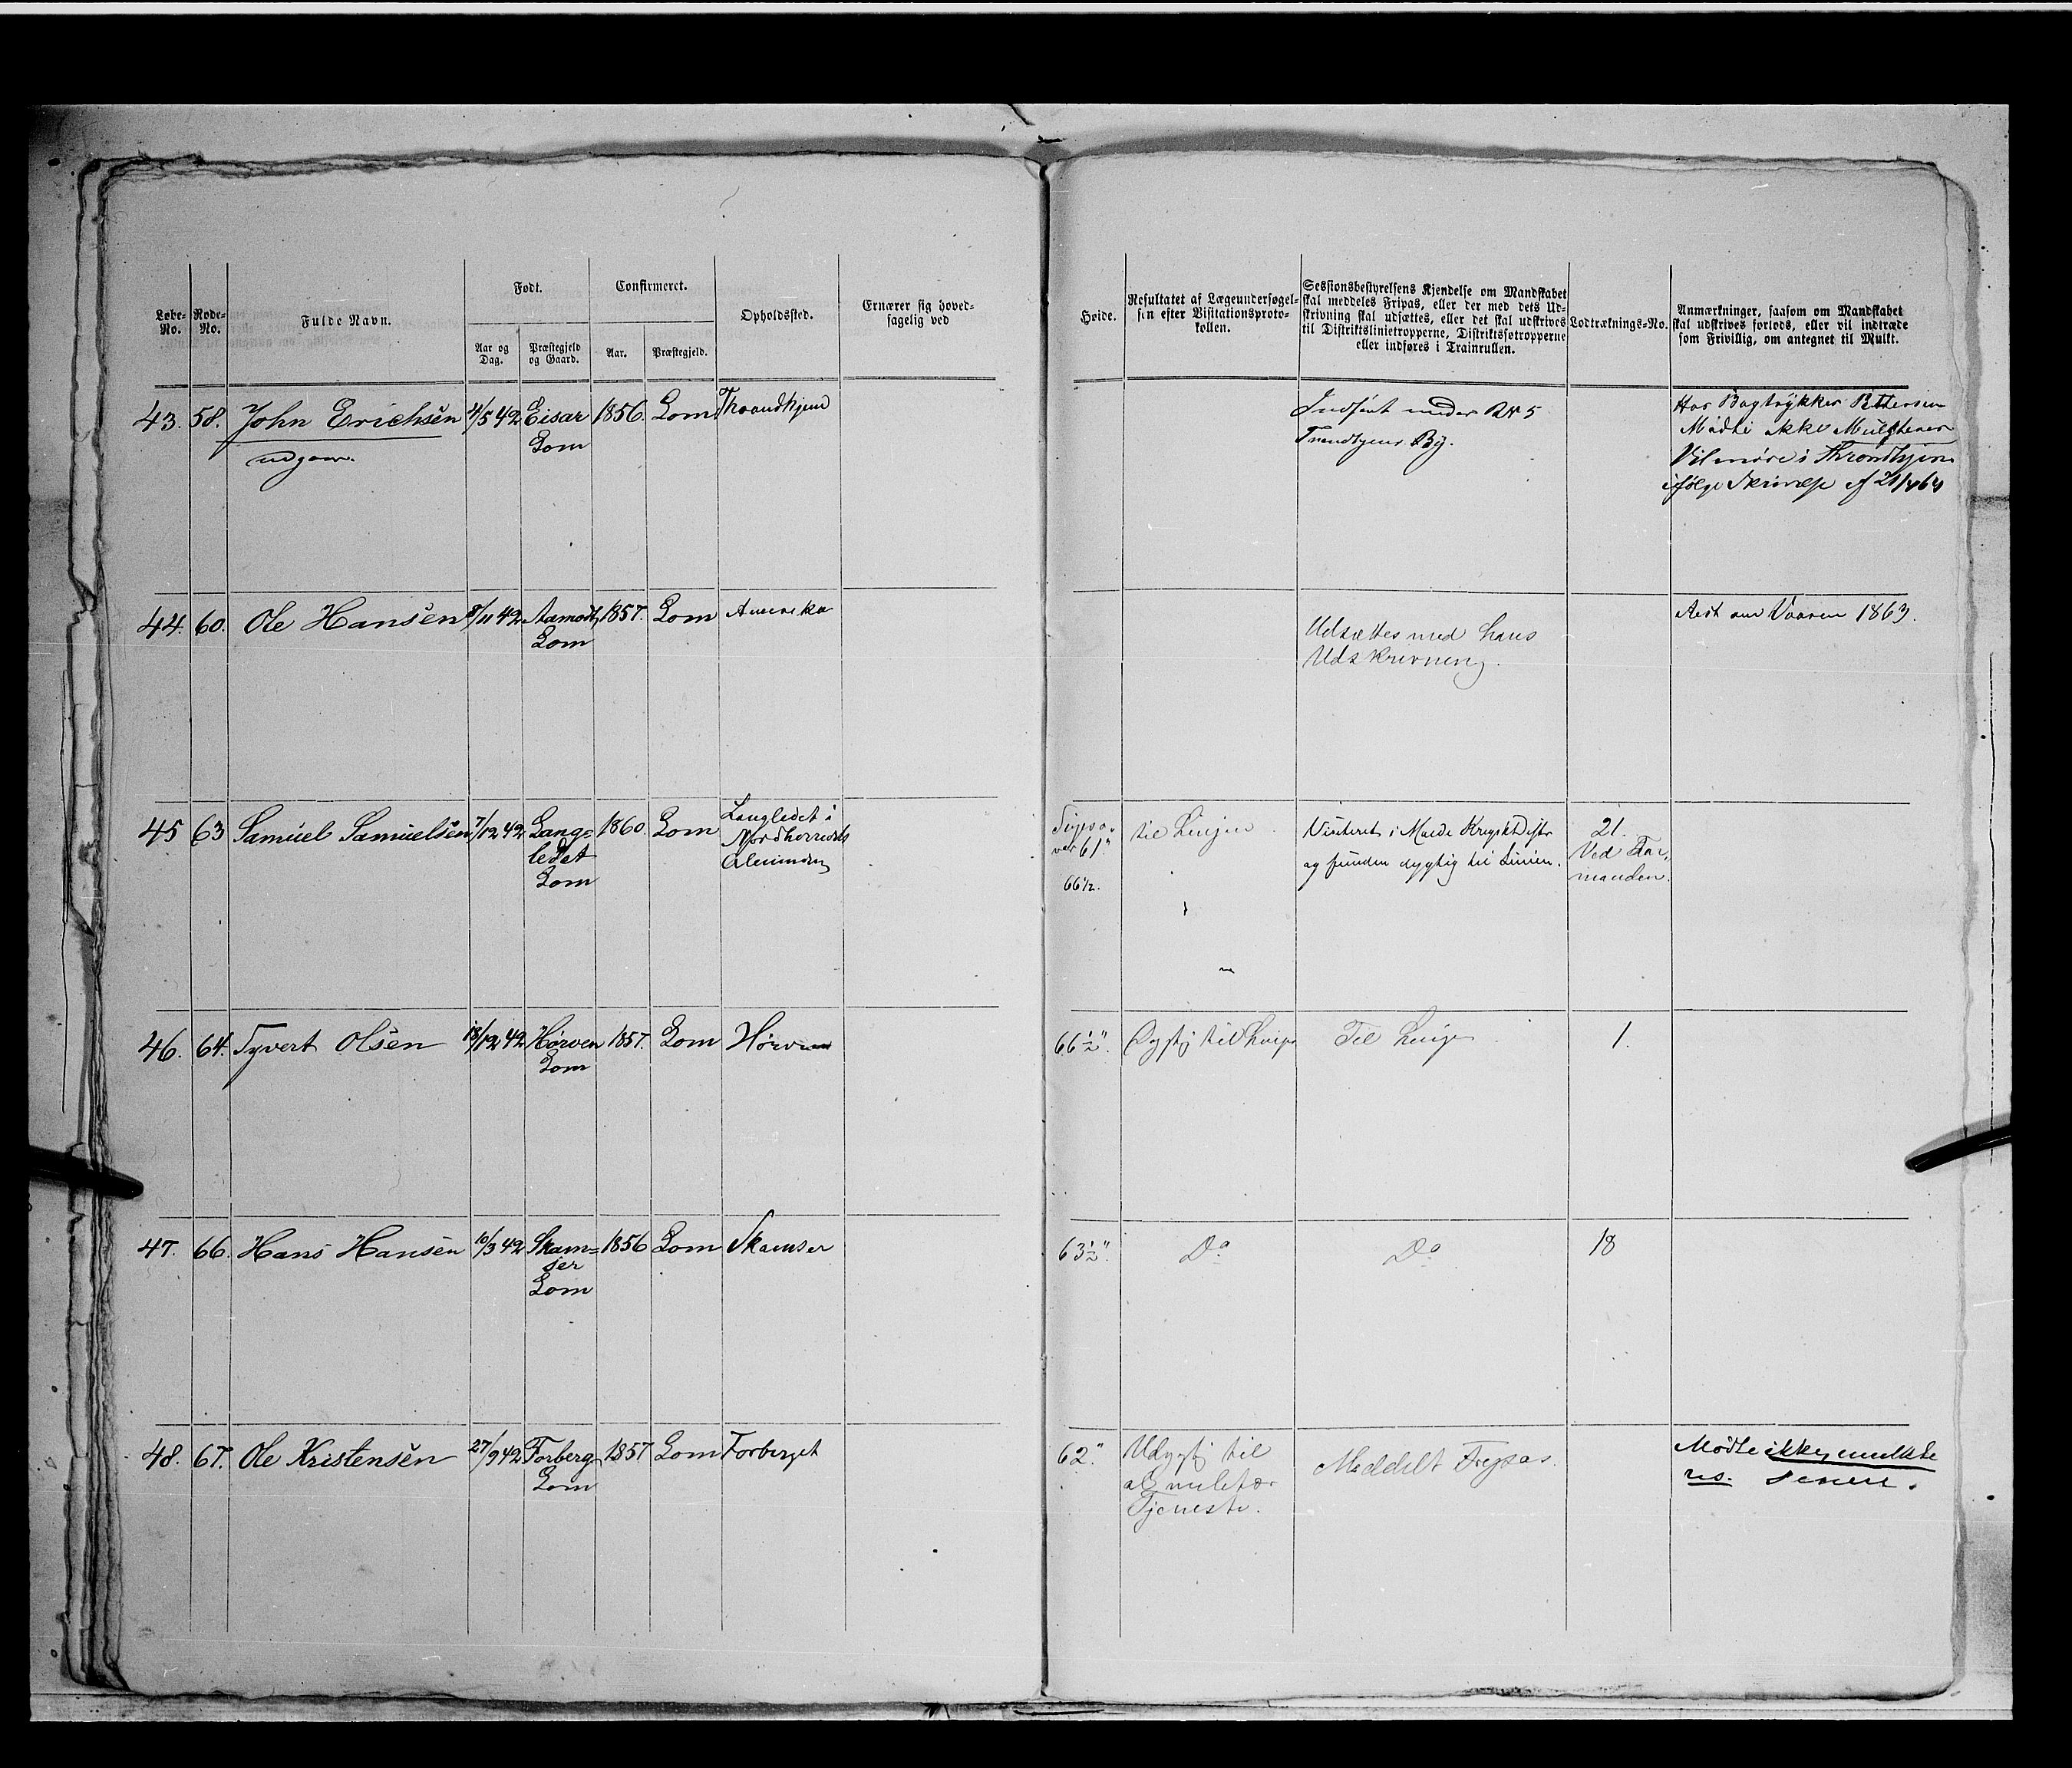 Løbe-No. Rode-No. Fulde Navn. Født. Confirmeret. Opholdssted. Ernærer sig hoved-sagelig ved
Aar og Dag. Præstegjeld og Gaard. Aar. Præstegjeld.
Høide. Resultatet af Lægeundersøgel-sen efter Visitationsproto-kollen.
Sessionsbestyrelsens Kjendelse om Mandskabet
skal meddeles Fripas, eller der med dets Ud-
skrivning skal udsættes, eller det skal udskrives
til Distriktslinietropperne, Distriktsfotropperne
eller indføres i Trainrullen.
Lodtræknings-No.
Anmærkninger, saasom om Mandskabet
skal udskrives forlods, eller vil indtræde
som Frivillig, om antegnet til Mulkt.
43. 58. John Erichsen 4/5 42 Eisar 1856. Lom Throndhjem
udgaar. Lom
Indført under RN 5
Trondhjems By.
Hos Bogtrykker Pettersen
Mødte ikke Mulkteres
Vil møde i Throndhjem
ifølge Skrivelse af
44. 60. Ole Hansen 8/11 42 Aamodt 1857. Lom Amerika
Lom
Udsættes med hans
Udskrivning.
Rest om Vaaren 1863.
45 63 Samuel Samuelsen 7/12 42 Lang= 1860. Lom Langledet i
ledet Nordherreds
Lom Alminding
var 61" til Linjen
66 1/2.
Visiteret i Molde Krigskt Distr
og funden dygtig til Linien.
21.
Ved For,,
manden.
46. 64. Syvert Olsen 18/12 42 Hørven 1857. Lom Hørven
Lom
66 1/2". Dygtig til Linjen Til Linjen 1.
47. 66. Hans Hansen 10/3 42 Skam= 1856 Lom Skamser
ser
Lom
63 1/2". Do Do 18
48. 67. Ole Kristensen 27/9 42 Forberg 1857 Lom Forberget
Lom
62". Udygtig til
al militær
Tjeneste.
Meddelt Fripas.
Mødte ikke, mulkte
res. senere.